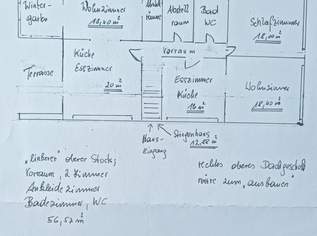 Winter-
garten
Wohnzimmer
18,40 m²
Abstell
raum
Bad
WC
Schlafzimmer
18,00 m²
Vorraum
Küche
Esszimmer
20 m²
Terrasse
Esszimmer
Küche
16 m²
Wohnzimmer
18,40 m²
Haus-
Eingang
Stiegenhaus
12,88 m²
"linker" oberer Stock:
Vorraum, 2 Zimmer
Ankleidezimmer
Badezimmer, WC
56,52 m²
rechtes oberes Dachgeschoß
wäre zum "ausbauen"